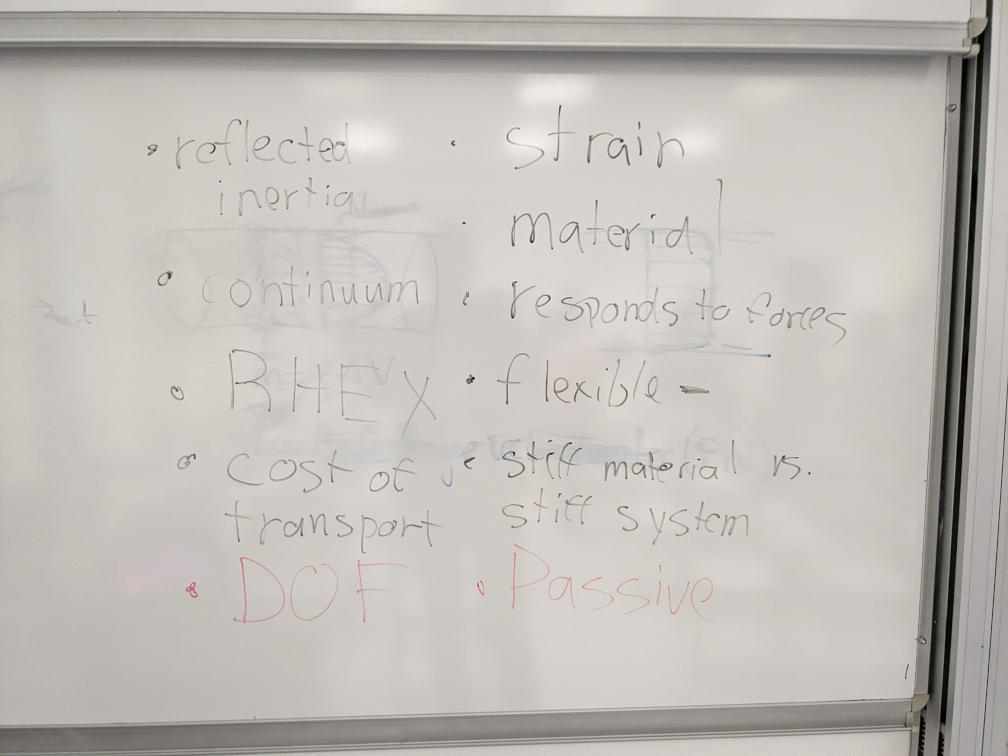 • reflected
inertia
• continuum
• RHEX
• cost of
transport
• DOF
• strain
• material
• responds to forces
• flexible -
• stiff material vs.
stiff system
• Passive